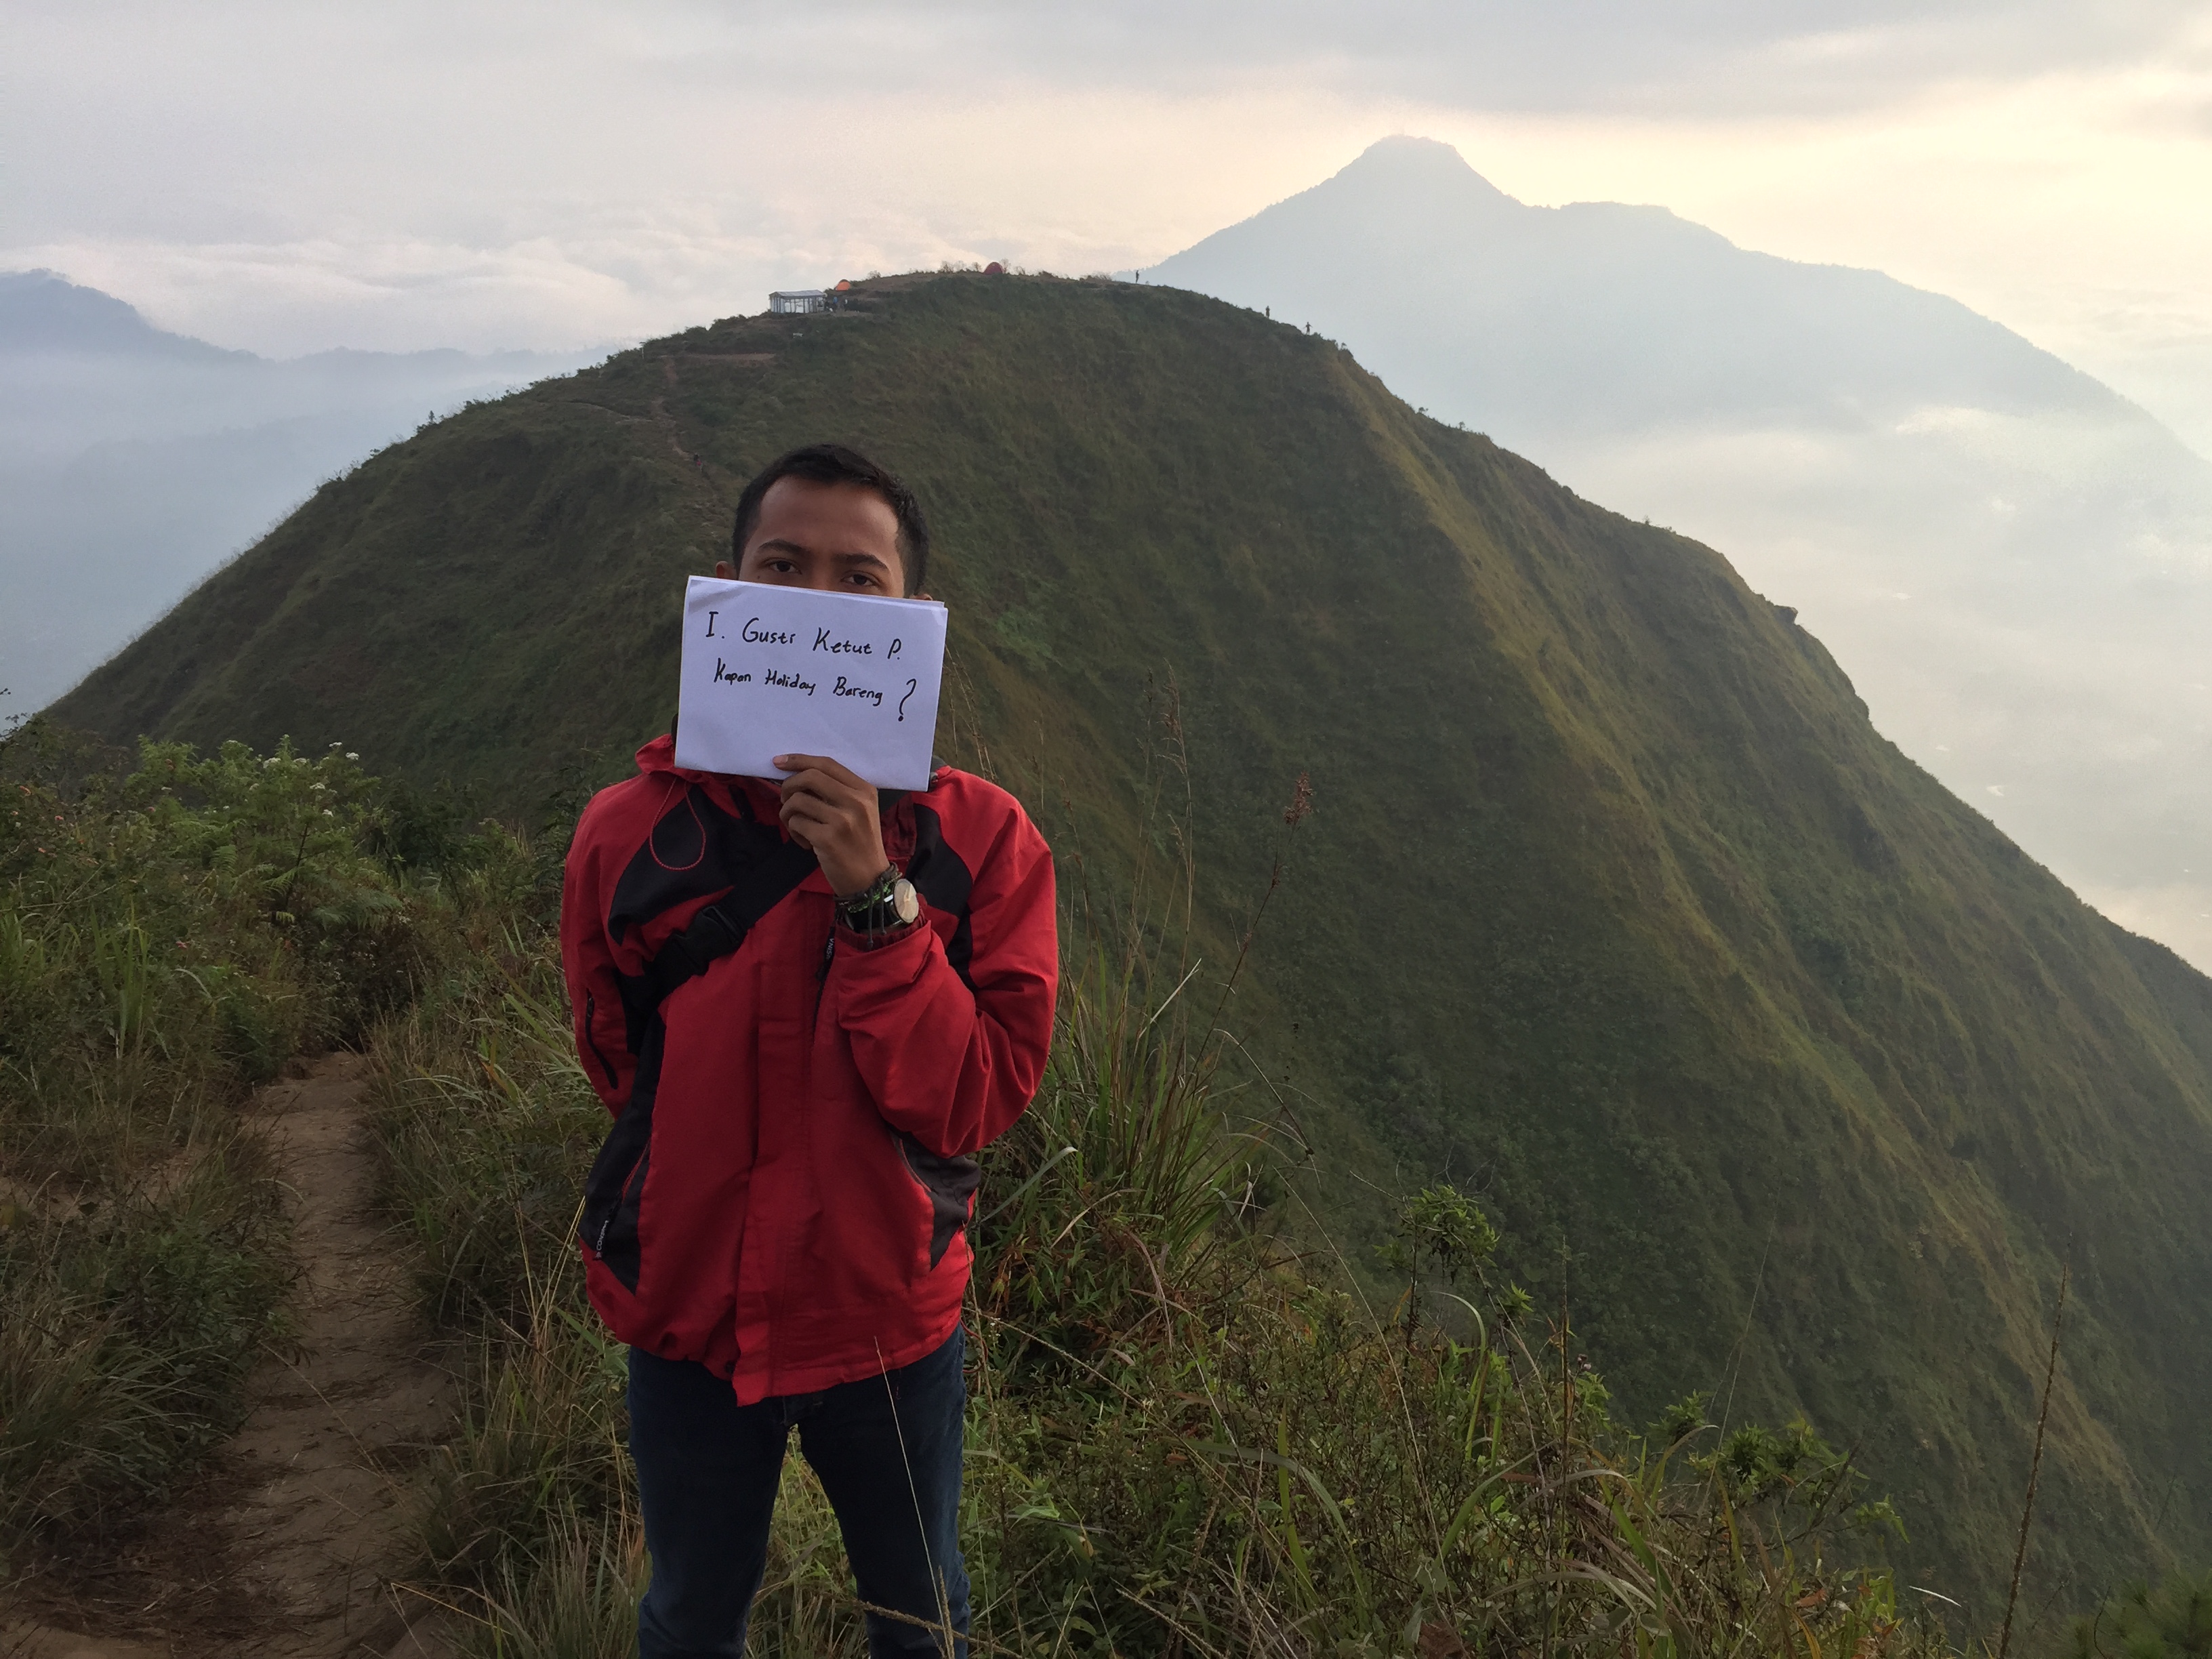 I. Gusti Ketut P.
Kapan Holiday Bareng ?